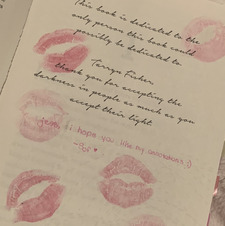 This book is dedicated to the
only person this book could
possibly be dedicated to.
Tarryn Fisher,
thank you for accepting the
darkness in people as much as you
accept their light.
i hope you like my annotations :)